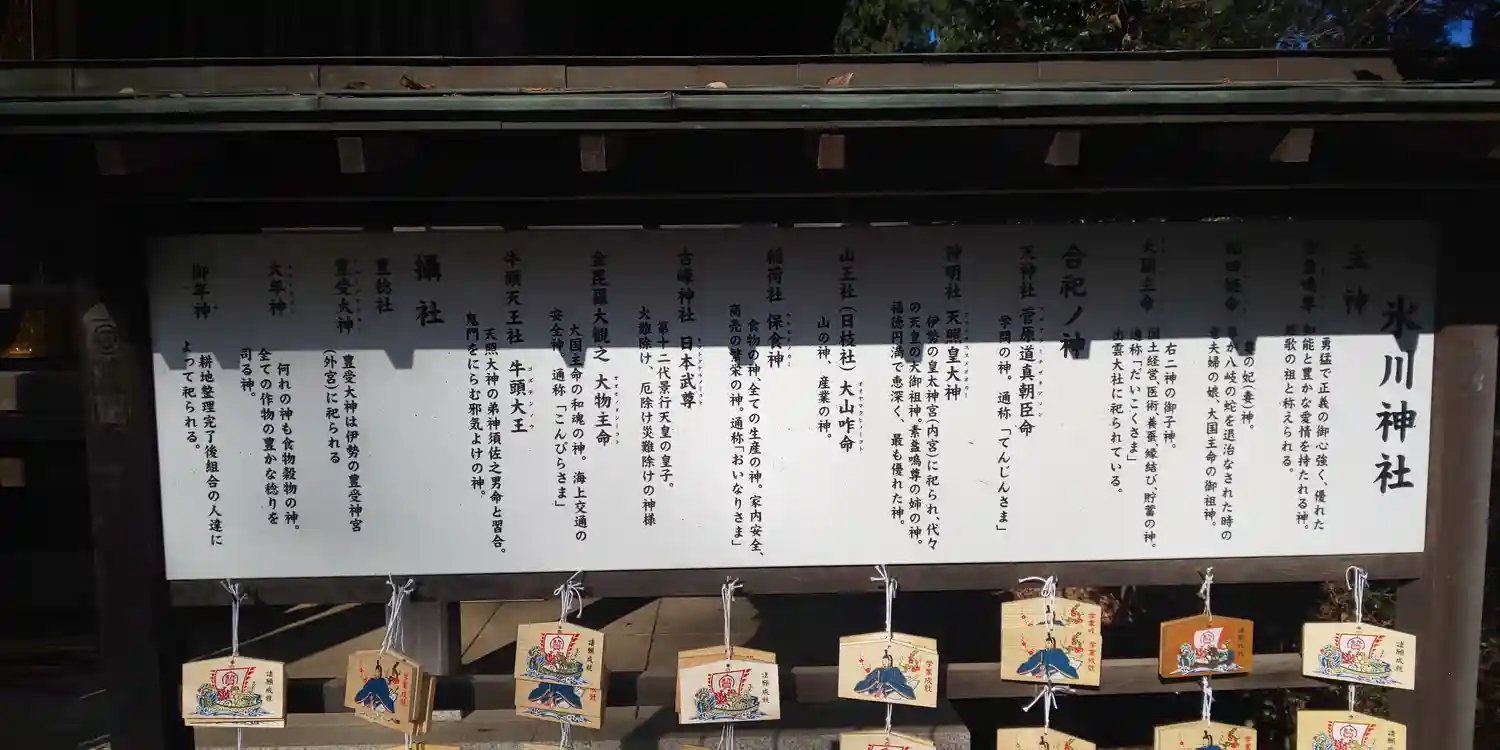 氷川神社
主神
素盞嗚尊
勇猛で正義の御心強く、優れた
知能と豊かな愛情を持たれる神。
和歌の祖と称えられる。
稲田姫命
尊の妃(妻)神。
尊が八岐の蛇を退治なされた時の
老夫婦の娘、大国主命の御祖神。
大国主命
右二神の御子神。
国土経営、医術、養蚕、縁結び、貯蓄の神。
通称「だいこくさま」
出雲大社に祀られている。
合祀ノ神
天神社 菅原道真朝臣命
学問の神。通称「てんじんさま」
神明社 天照皇大神
伊勢の皇太神宮(内宮)に祀られ、代々
の天皇の大御祖神、素盞嗚尊の姉の神。
福徳円満で恵深く、最も優れた神。
山王社(日枝社)大山咋命
山の神、産業の神。
稲荷社 保食神
食物の神、全ての生産の神。家内安全、
商売の繁栄の神。通称「おいなりさま」
古峰神社 日本武尊
第十二代景行天皇の皇子。
火難除け、厄除け災難除けの神様
金毘羅大観之 大物主命
大国主命の和魂の神。海上交通の
安全神。通称「こんぴらさま」
牛頭天王社 牛頭大王
天照大神の弟神須佐之男命と習合。
鬼門をにらむ邪気よけの神。
攝社
豊稔社
豊受大神
豊受大神は伊勢の豊受神宮
(外宮)に祀られる
大年神
何れの神も食物穀物の神。
全ての作物の豊かな稔りを
司る神。
御年神
耕地整理完了後組合の人達に
よって祀られる。
諸願成就
学業成就
諸願成就
諸願成就
学業成就
学業成就
諸願成就
諸願成就